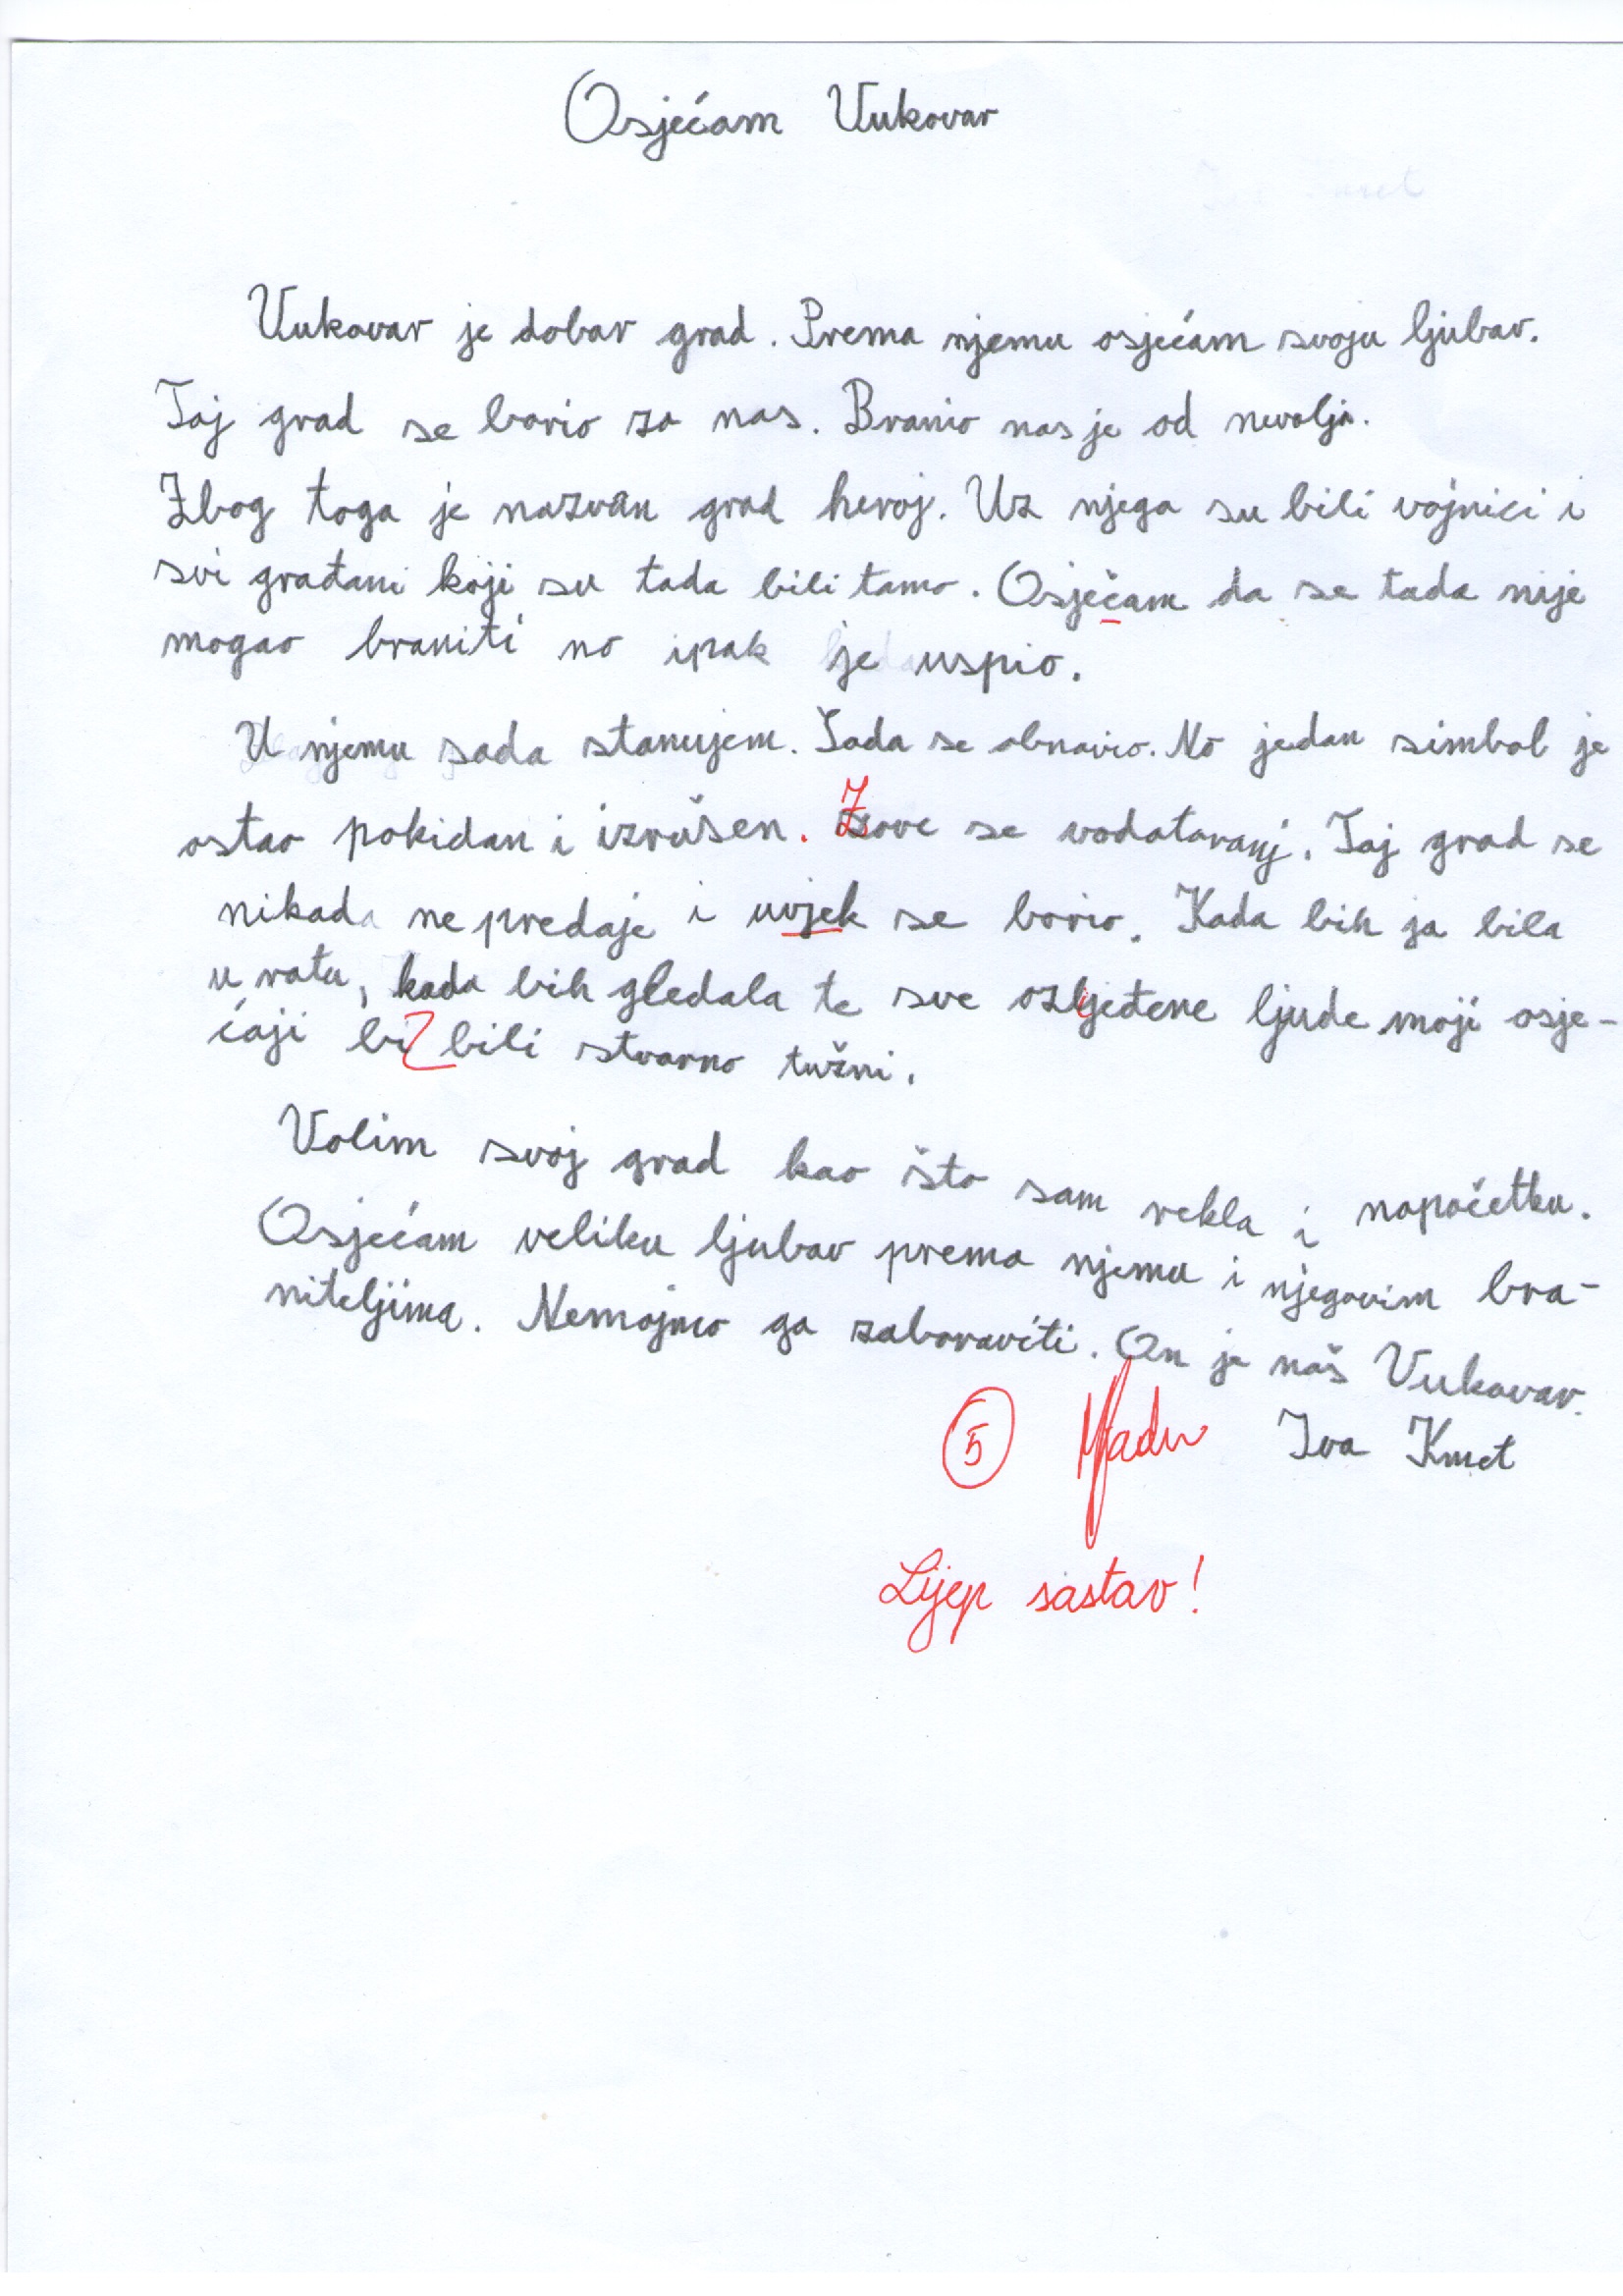 Osjećam Vukovar
Vukovar je dobar grad. Prema njemu osjećam svoju ljubav.
Taj grad se borio za nas. Branio nas je od nevolja.
Zbog toga je nazvan grad heroj. Uz njega su bili vojnici i
svi građani koji su tada bili tamo. Osječam da se tada nije
mogao braniti no ipak je uspio.
U njemu sada stanujem. Sada se obnavio. No jedan simbol je
ostao pokidan i izrušen. Zove se vodotoranj. Taj grad se
nikada ne predaje i uvjek se borio. Kada bih ja bila
u ratu, kada bih gledala te sve ozljeđene ljude moji osje-
ćaji bi bili stvarno tužni.
Volim svoj grad kao što sam rekla i napočetku.
Osjećam veliku ljubav prema njemu i njegovim bra-
niteljima. Nemojmo ga zaboraviti. On je naš Vukovar.
5 Iva Kmet
Lijep sastav!